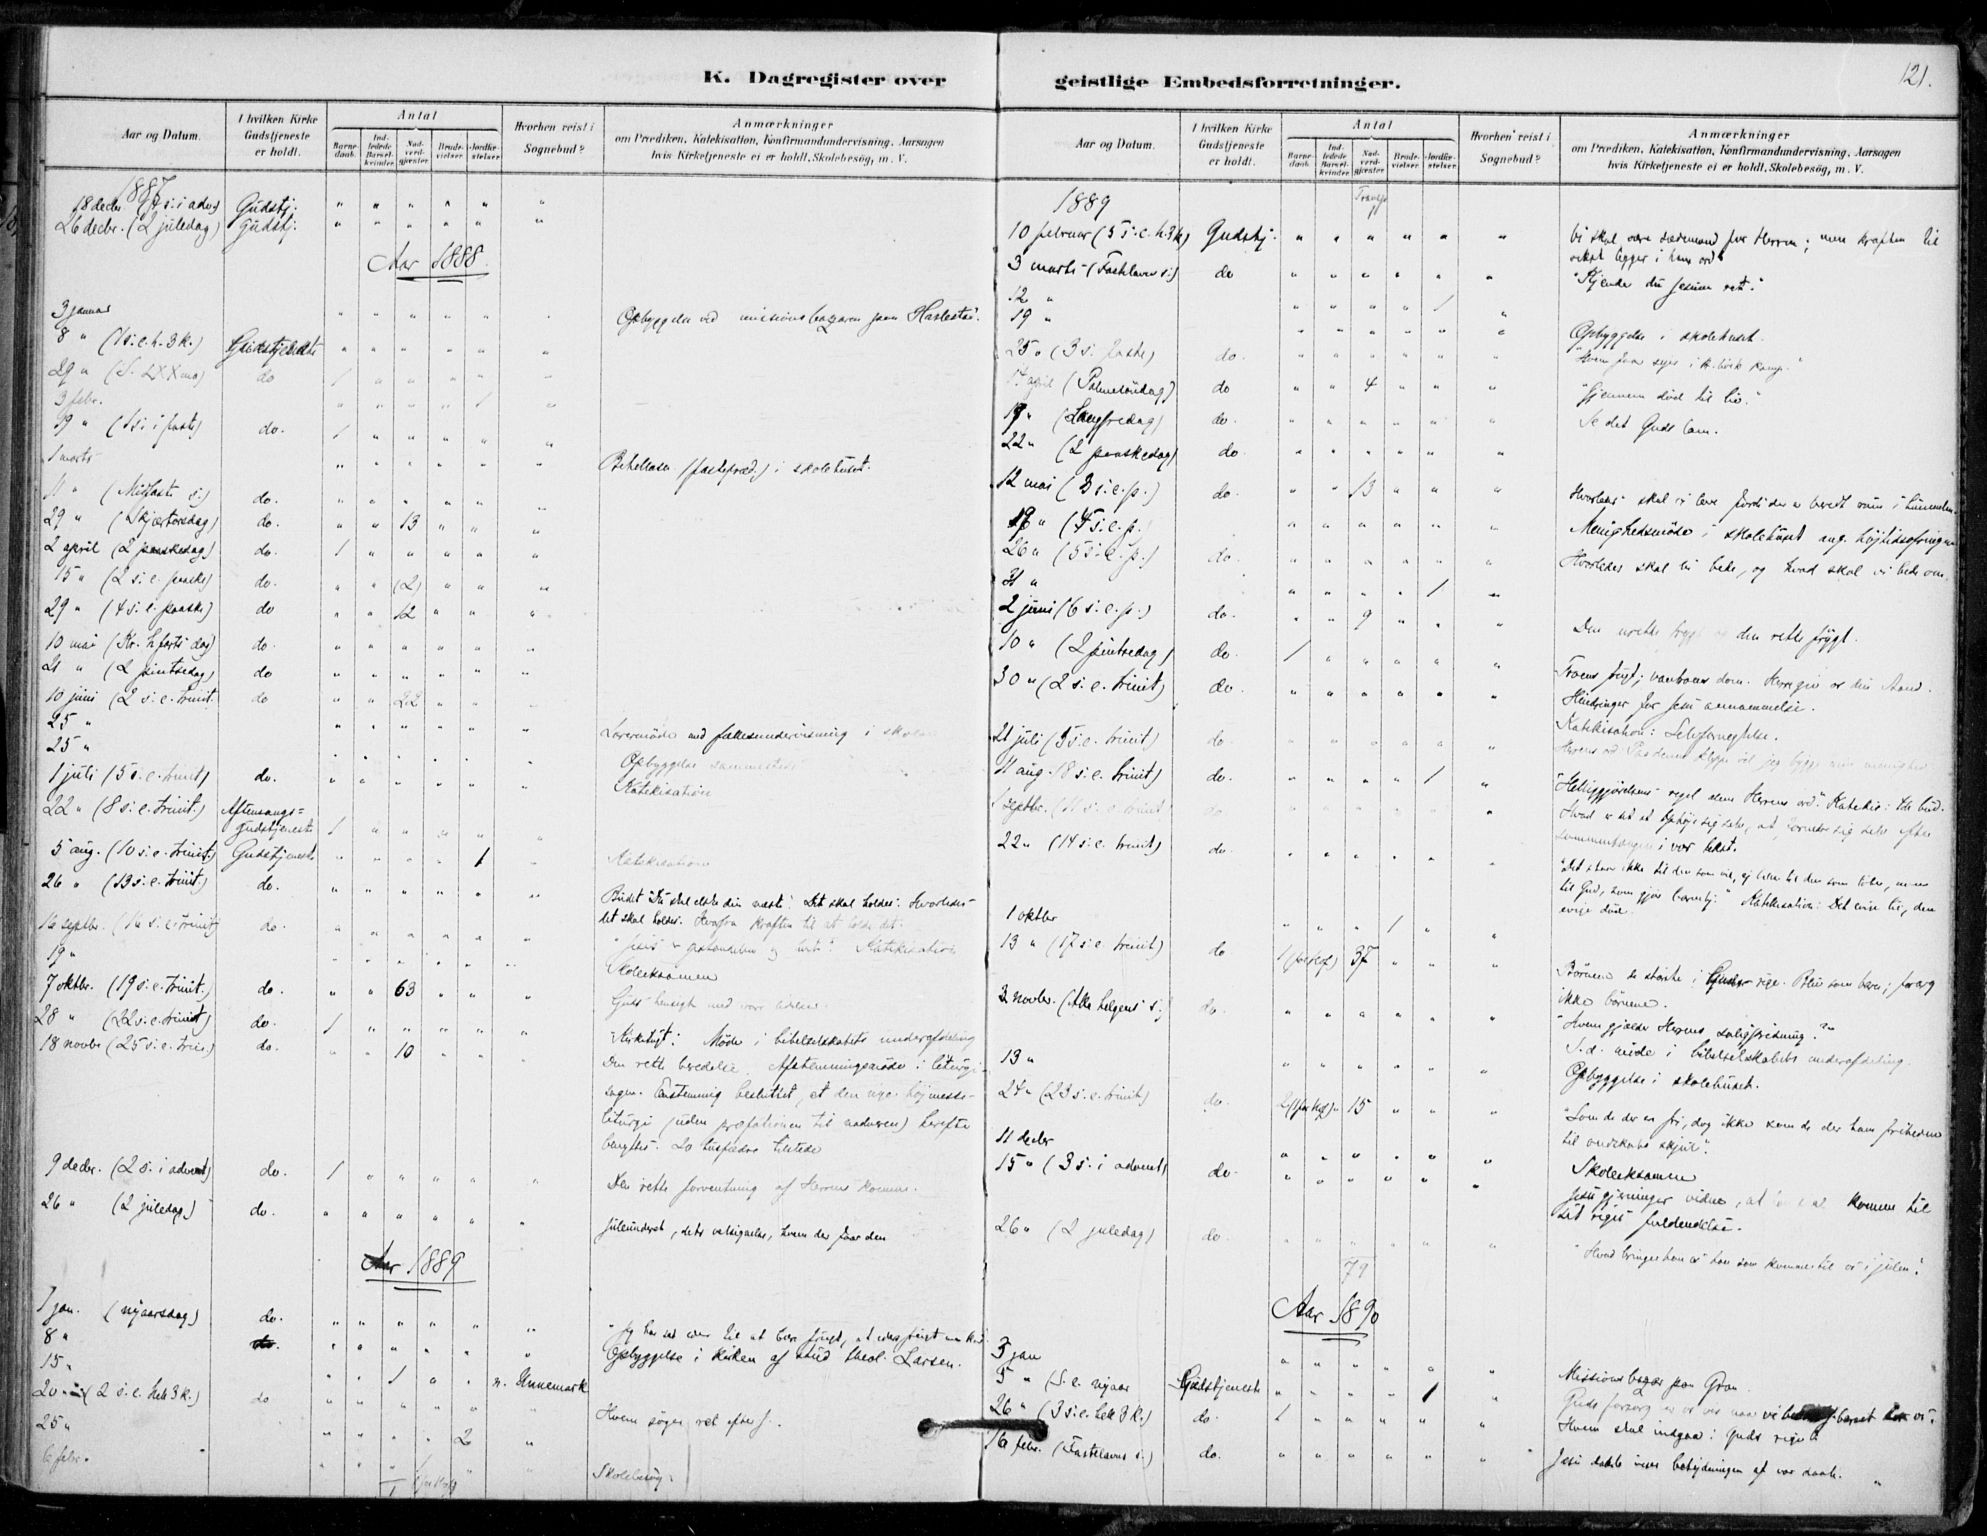 K. Dagregister over geistlige Embedsforretninger.
121.
Aar og Datum.
I hvilken Kirke Gudstjeneste er holdt.
Antal
Barnedaab.
Indledede Barselkvinder
Nadverdgjæster
Brudevielser
Jordfæstelser
Hvorhen reist i Sognebud?
Anmærkninger
om Prædiken, Katekisation, Konfirmandundervisning, Aarsagen
hvis Kirketjeneste ei er holdt, Skolebesög, m. V.
1887
18 decbr (4 s. i adv.) Gudstj. " " " " " "
26 decbr. (2 juledag) Gudstj. " " " " " "
Aar 1888
3 januar " " " " " " Opbyggelse ved missionsbazaren paa
8 " (1 s. e. h. 3 k.) Gudstjeneste " " " " " "
29 " (S. LXXma) do 1 " " " " "
3 febr. " " " " 1 "
19 " (1 s. i faste) do. 1 " " " " "
1 marts " " " " " " Bibellæsn. (fastepræd.) i skolehuset.
11 " (Midfaste s.) do. " " " " " "
29 " (Skjærtorsdag) do. " " 13 " " "
2 april (2 paaskedag) do. 1 " " " " "
15 " (2 s. e. paaske) do. " " (2) " " "
29 " (4 s. e. paaske) do " " 12 " " "
10 mai (Kr. h.farts dag) do. " " " " " "
21 " (2 pintsedag) do " " " " " "
10 juni (2 s. e. trinit. do " " 22 " " "
25 " " " " " " " Lærermöde med fællesundervisning i
25 " " " " " " " Opbyggelse sammesteds
1 juli (5 s. e. trinit) do. " " " " " " Katekisation
22 " (8 s. e. trinit.) Aftensangs=
gudstjeneste 1 " " " " "
5 aug. (10 s. e. trinit.) Gudstjeneste " " " " 1 " Katekisation
26 " (13 s. e. trinit.) do. " " " " " " Budet "Du skal elske din næste". Det skal holdes. Hvorledes
det skal holdes. Hvorfra kraften til at holde det.
16 septbr. (16 s. e. trinit) do. " " " " " " Katekisation
19 " " " " " " " Skoleeksamen
7 oktbr. (19 s. e. trinit.) do. " " 63 " " " Guds hensigt med vore lidelser.
28 " (22 s. e. trinit) do. 1 " " " " " Kirketugt. Möde i bibelselskabets underafdeling
18 novbr (25 s. e. trin.) do. " " 10 " " " Den rette beredelse. Afstemningsmöde i liturgi-
sagen. Enstemmig besluttet, at den nye höjmesse-
liturgi (uden præfationen til nadveren) herefter
benyttes. 20 husfædre tilstede
9 decbr. (2 s. i advent) do. 1 " " " " " Den rette forventning af Herrens komme.
26 " (2 juledag) do. " " " " " " Juleunderet, dets velsignelse, hvem der faar den
Aar 1889
1 jan. (nyaarsdag) do. " " " " " " "Jeg har sat eder til at bære frugt,
8 " " " " " " " Opbyggelse i kirken af stud. theol. Larsen.
15 " " " 1 " " n. Unnemark
20 " (2 s. e. hell 3 k.) do " " " " " " Hvem söger ret efter J.
25 " " " " " 2 "
6 febr. " " " " " " Skolebesög.
Aar og Datum.
I hvilken Kirke Gudstjeneste er holdt.
Antal
Barnedaab.
Indledede Barselkvinder
Nadverdgjæster
Brudevielser
Jordfæstelser
Hvorhen reist i Sognebud?
Anmærkninger
om Prædiken, Katekisation, Konfirmandundervisning, Aarsagen
hvis Kirketjeneste ei er holdt, Skolebesög, m. V.
1889
10 februar (5 s. e. h. 3 k) Gudstj. " " " " " " Vi skal være sædemænd for Herren; men kraften til
vekst ligger i hans ord
3 marts (Fastelavns s.) do " " " " " " "Kjender du Jesum ret."
12 " " " " " 1 "
19 " " " " " " " Opbyggelse i skolehuset.
25 " (3 s. faste) do. " " " " " "
14 april (Palmesöndag) do " " 4 " " " "Gjennem död til liv."
19 " (Langfredag) do. " " " " " " Se det Guds lam.
22 " (2 paaskedag) do. " " " " " "
12 mai (3 s. e. p.) do. " " 13 " " " Hvorledes skal vi leve fordi der er beredt rum i himmelen
19 " (4 s. e. p.) " " " " " " Menighedsmöde i skolehuset ang. höjtidsofringen
26 " (5 s. e. p.) do. " " " " " " Hvorledes skal vi bede, og hvad skal vi bede om.
31 " " " " " 1 "
2 juni (6 s. e. p.) do. " " 9 " " " Den urette frygt og den rette frygt.
10 " (2 pintsedag) do. 1 " " " " " Troens frugt; vantroens dom. Herre giv os din Aand.
30 " (2 s. e. trinit) do. " " " " " " Hindringer for Jesu annammelse.
Katekisation: Selvfornegtelse.
21 juli (5 s. e. trinit) do. " " " " " "
11 aug. (8 s. e. trinit) do. " " " " 1 " "Helliggjörelsens regel er Herrens ord". Katekis: 4de bud.
1 septbr. (11 s. e. trinit do " " " " " " Hvad er det at ophöje sig selv, at fornedre sig selv efter
sammenhængen i vor tekst.
22 " (14 s. e. trinit) do. " " " " " " "Det staar ikke til den som vil, ej heller til den som löber, men
til Gud, som gjör barmhj." Katekisation: Det evige liv, den
evige död.
1 oktbr " " " 1 " "
13 " (17 s. e. trinit) do 1 37 " " " Börnene de störste i Guds rige. Bliv som barn; forarg
ikke börnene.
3 novbr. (Alle helgens s.) do. " " " " " " "Hvem gjælder Herrens saligprisning?"
S. d. möde i bibelselskabets underafdeling.
13 " " " " " " " Opbyggelse i skolehuset.
24 " (23 s. e. trinit) do. 15 " " " "Som de der er fri, dog ikke som de der ham friheden
til ondskabs skjul".
11 decbr " " " " " " Skoleeksamen
15 " (3 s. i advent) do. " " " " " " Jesu gjerninger vidne, at kommen til
sit riges fuldendelse.
26 " (2 juledag) do. " " " " " " "Hvad bringer han os han som kommer til os i julen".
79
Aar 1890
3 jan " " " " " " Missions bazar paa Gran.
5 " (S. e. nyaar Gudstjeneste " " " " 1 "
26 " (3 s. e. hell 3 k.) do. 1 " " " " " Hvem skal indgaa i Guds rige?
16 febr. (Fastelavns s.) do. " " " " " " Jesu daab viser betydningen af vor daab.